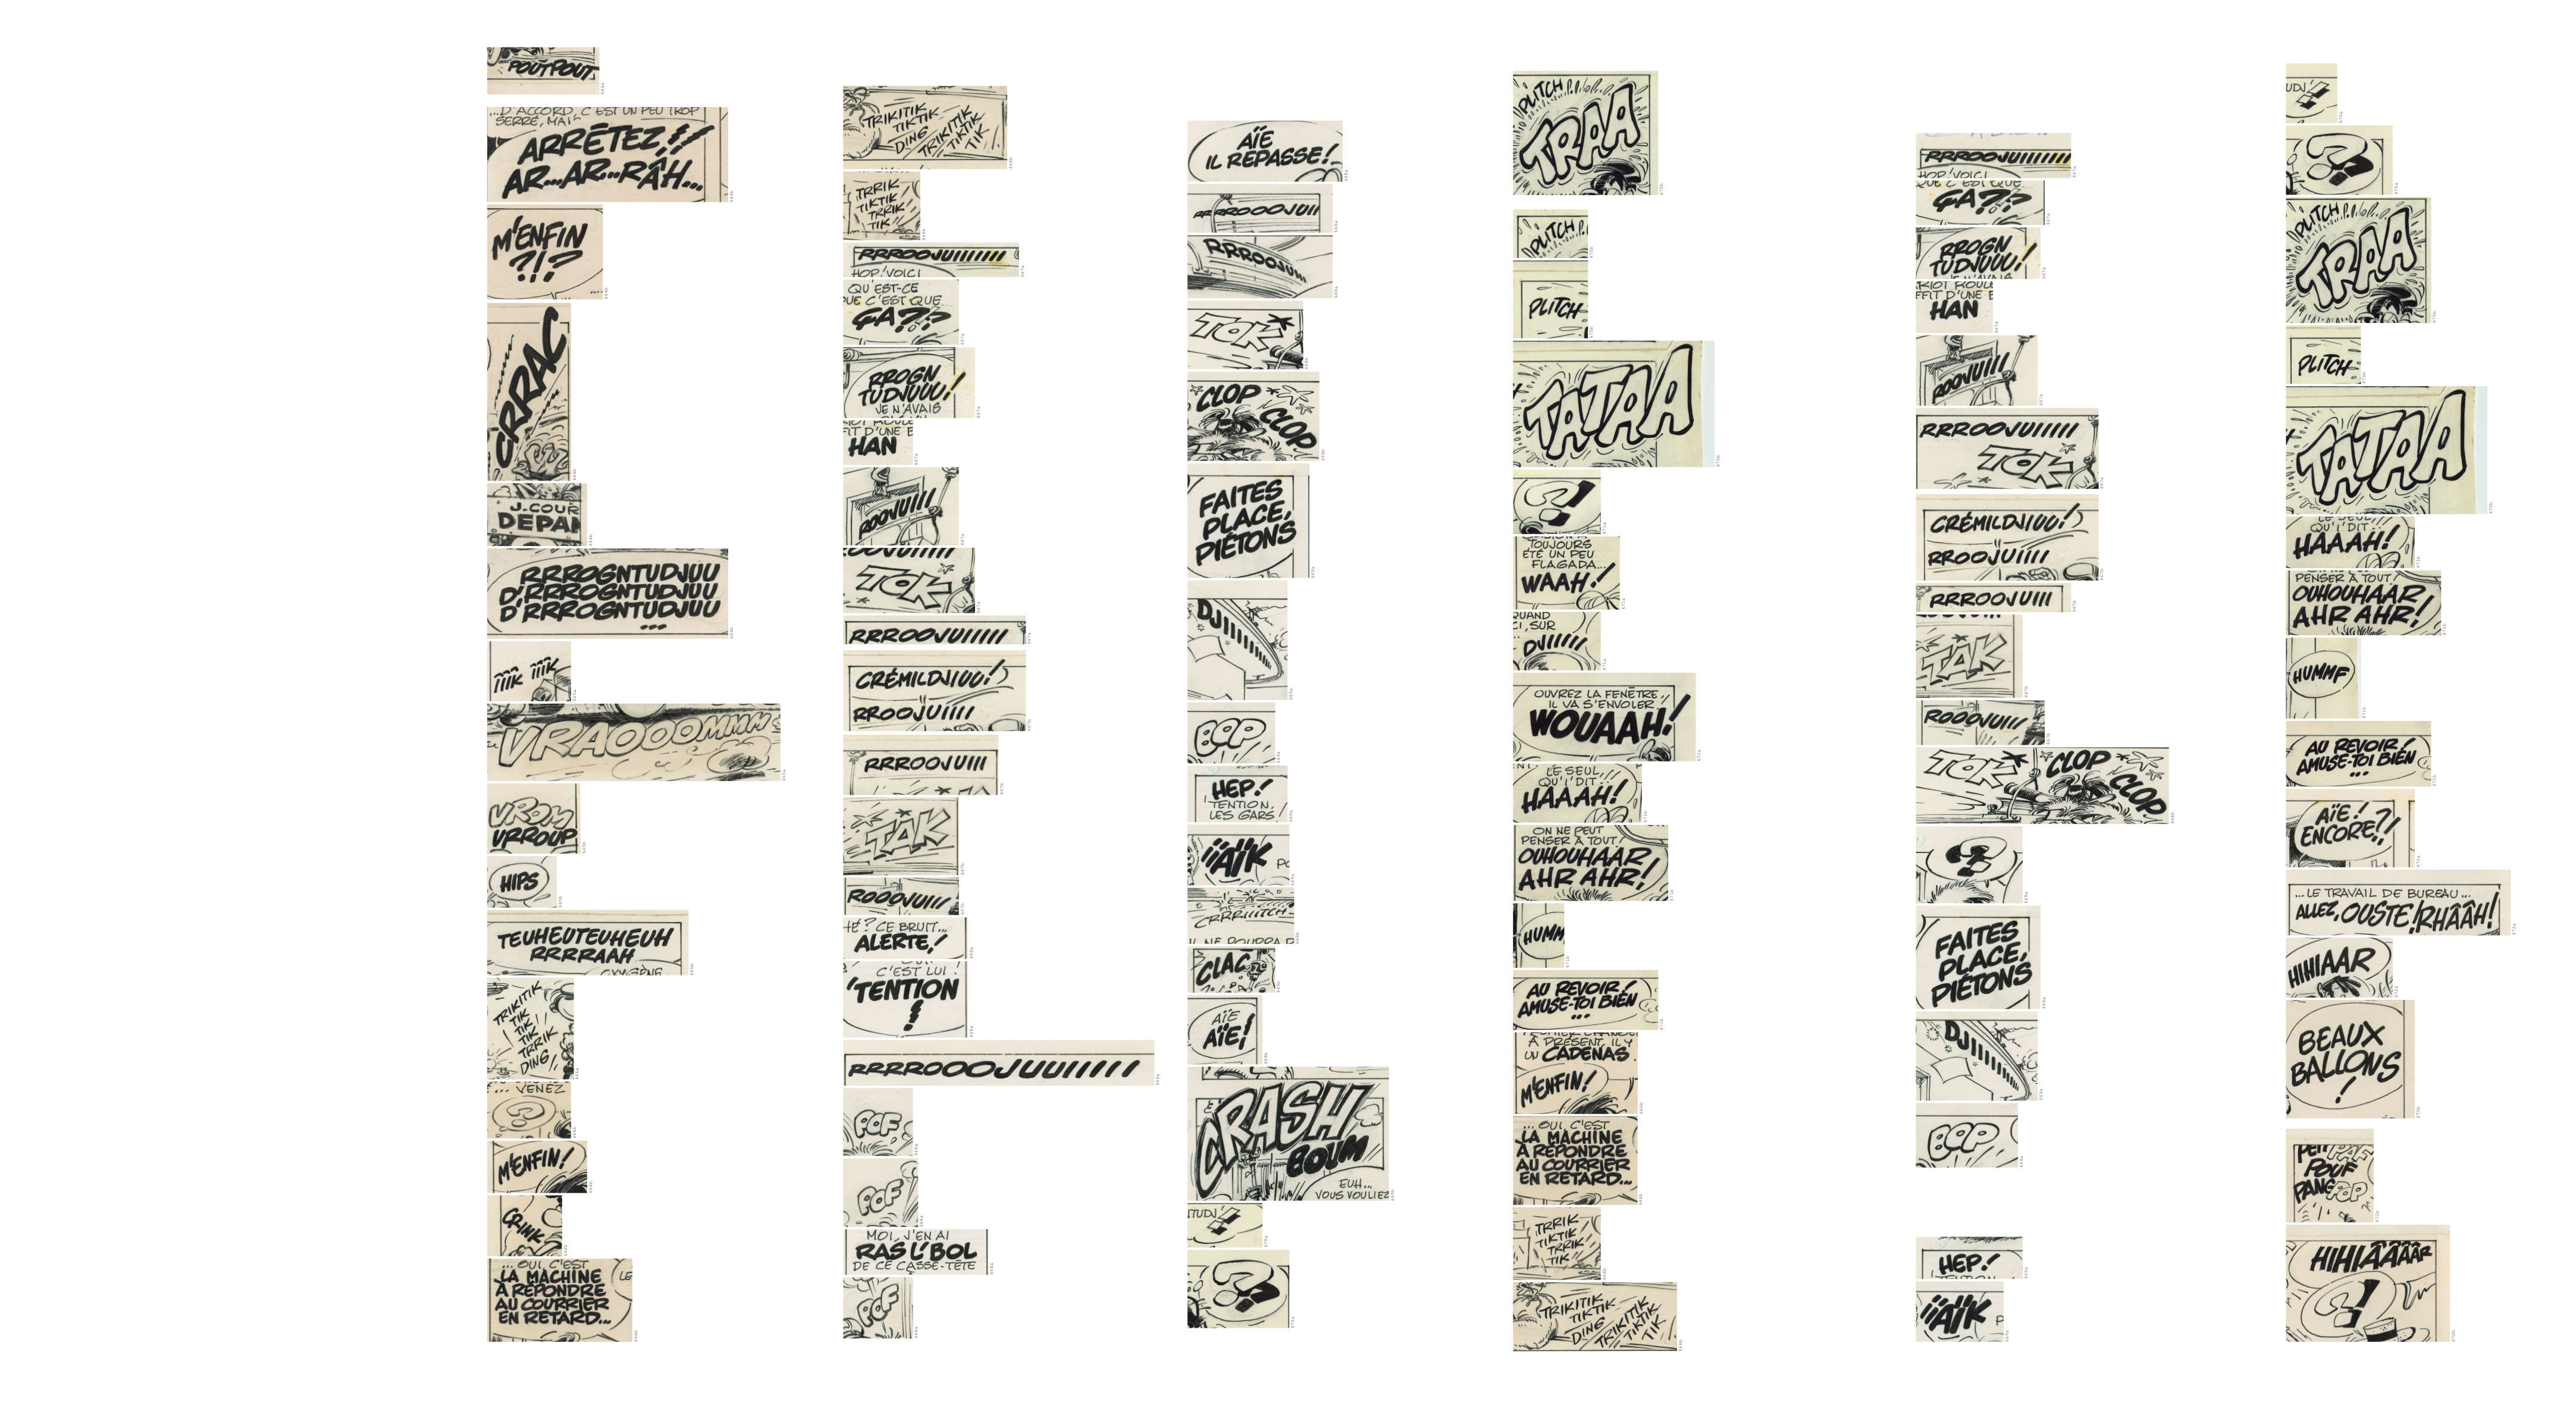 POUTPOUT
...D'ACCORD, C'EST UN PEU TROP
SERRÉ, MAIS
ARRÊTEZ,!!
AR...AR...RÂH...
M'ENFIN
?!?
CRRAC
J.COUR
DEPAN
RRROGNTUDJUU
D'RRROGNTUDJUU
D'RRROGNTUDJUU
...
ÏÏÏK ÏÏÏK
VRAOOOMMM
VROM
VRROUP
HIPS
TEUHEUTEUHEUH
RRRRAAH
OXYGÈNE
TRIKITIK
TIK
TIK
TIK
TRRIK
DING
... VENEZ
?
M'ENFIN!
CRINK
... OUI, C'EST
LA MACHINE
À RÉPONDRE
AU COURRIER
EN RETARD...
LE
TRIKITIK
TIKTIK
DING
TRIKITIK
TIKTIK
TIK
TRRIK
TIKTIK
TRRIK
TIK
RRROOJUIIIIIIII
HOP! VOICI
QU'EST-CE
QUE C'EST QUE
ÇA??
RROGN
TUDJUUU!
JE N'AVAIS
FFIT D'UNE E
HAN
ROOJUIII
TOK
RRROOJUIIIIII
CRÉMILDJIUU!
RROOJUIIII
RRROOJUIII
TAK
ROOOJUIII
HÉ? CE BRUIT...
ALERTE!
C'EST LUI!
'TENTION
!
RRRROOOJUUIIIIII
POF
POF
MOI, J'EN AI
RAS L'BOL
DE CE CASSE-TÊTE
POF
AÏE
IL REPASSE!
RRRROOOJUII
RRROOJUII
TOK
CLOP
CLOP
FAITES
PLACE,
PIÉTONS
DJIIIIIIII
BOP
HEP!
'TENTION,
LES GARS!
ÏÏAÏK
CRRRIIITCH
IL NE POURRA P
CLAC
AÏE
AÏE!
CRASH
BOUM
EUH...
VOUS VOULIEZ
NTUDJ'!!
??
PLITCH
TRAA
PLITCH
PLITCH
TATAA
?!
TOUJOURS
ÉTÉ UN PEU
FLAGADA...
WAAH!
QUAND
CI, SUR
DJIIIII
OUVREZ LA FENÊTRE,
IL VA S'ENVOLER!
WOUAAH!
LE SEUL,
QU'I'DIT...
HÀAAH!
ON NE PEUT
PENSER À TOUT!
OUHOUHAAR
AHR AHR!
HUMM
AU REVOIR!
AMUSE-TOI BIEN
...
À PRÉSENT, IL Y
UN CADENAS.
M'ENFIN!
... OUI, C'EST
LA MACHINE
À RÉPONDRE
AU COURRIER
EN RETARD...
TRRIK
TIKTIK
TRRIK
TIK
TRIKITIK
TIKTIK
DING
TRIKITIK
TIKTIK
TIK
RRROOJUIIIIIIII
HOP! VOICI
QUE C'EST QUE
ÇA??
RROGN
TUDJUUU!
RIOT ROULE
FFIT D'UNE E
HAN
ROOJUIII
RRROOJUIIIII
TOK
CRÉMILDJIUU!
RROOJUIIII
RRROOJUIII
TAK
ROOOJUIII
TOK
CLOP
CLOP
?
FAITES
PLACE,
PIÉTONS
DJIIIIIIII
BOP
HEP!
'TENTION,
ÏÏAÏK
UDJ'!!
??
PLITCH
TRAA
PLITCH
TATAA
LE SEUL,
QU'I'DIT...
HÀAAH!
PENSER À TOUT!
OUHOUHAAR
AHR AHR!
HUMMF
AU REVOIR!
AMUSE-TOI BIEN
...
AÏE!
ENCORE?!
...LE TRAVAIL DE BUREAU...
ALLEZ, OUSTE! RHÂÂH!
HIHIAAR
BEAUX
BALLONS
!
PAF
POUF
PANG
POP
HIHIÂÂÂÂR
?!